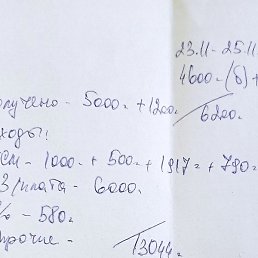 23.11 - 25.11
4600=(б)+
олучено - 5000= + 1200= / 6200=
ходы:
СМ - 1000= + 500= + 1917= + 790=
З/плата - 6000=
% - 580=
прочие - / 13044=